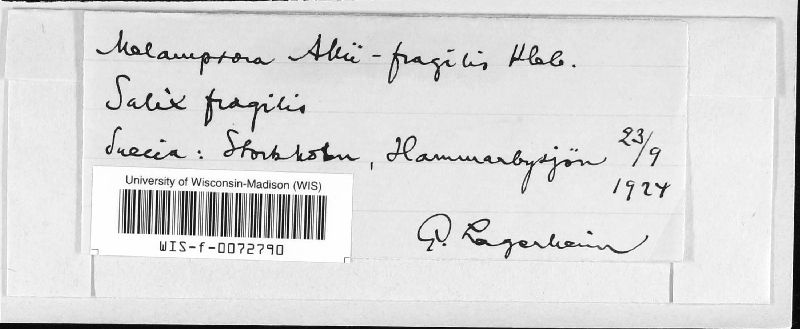 Melampsora Allii-fragilis Kleb.
Salix fragilis
Suecia: Stockholm, Hammarbysjön 23/9
1924
G. Lagerheim
University of Wisconsin-Madison (WIS)
WIS-f-0072790